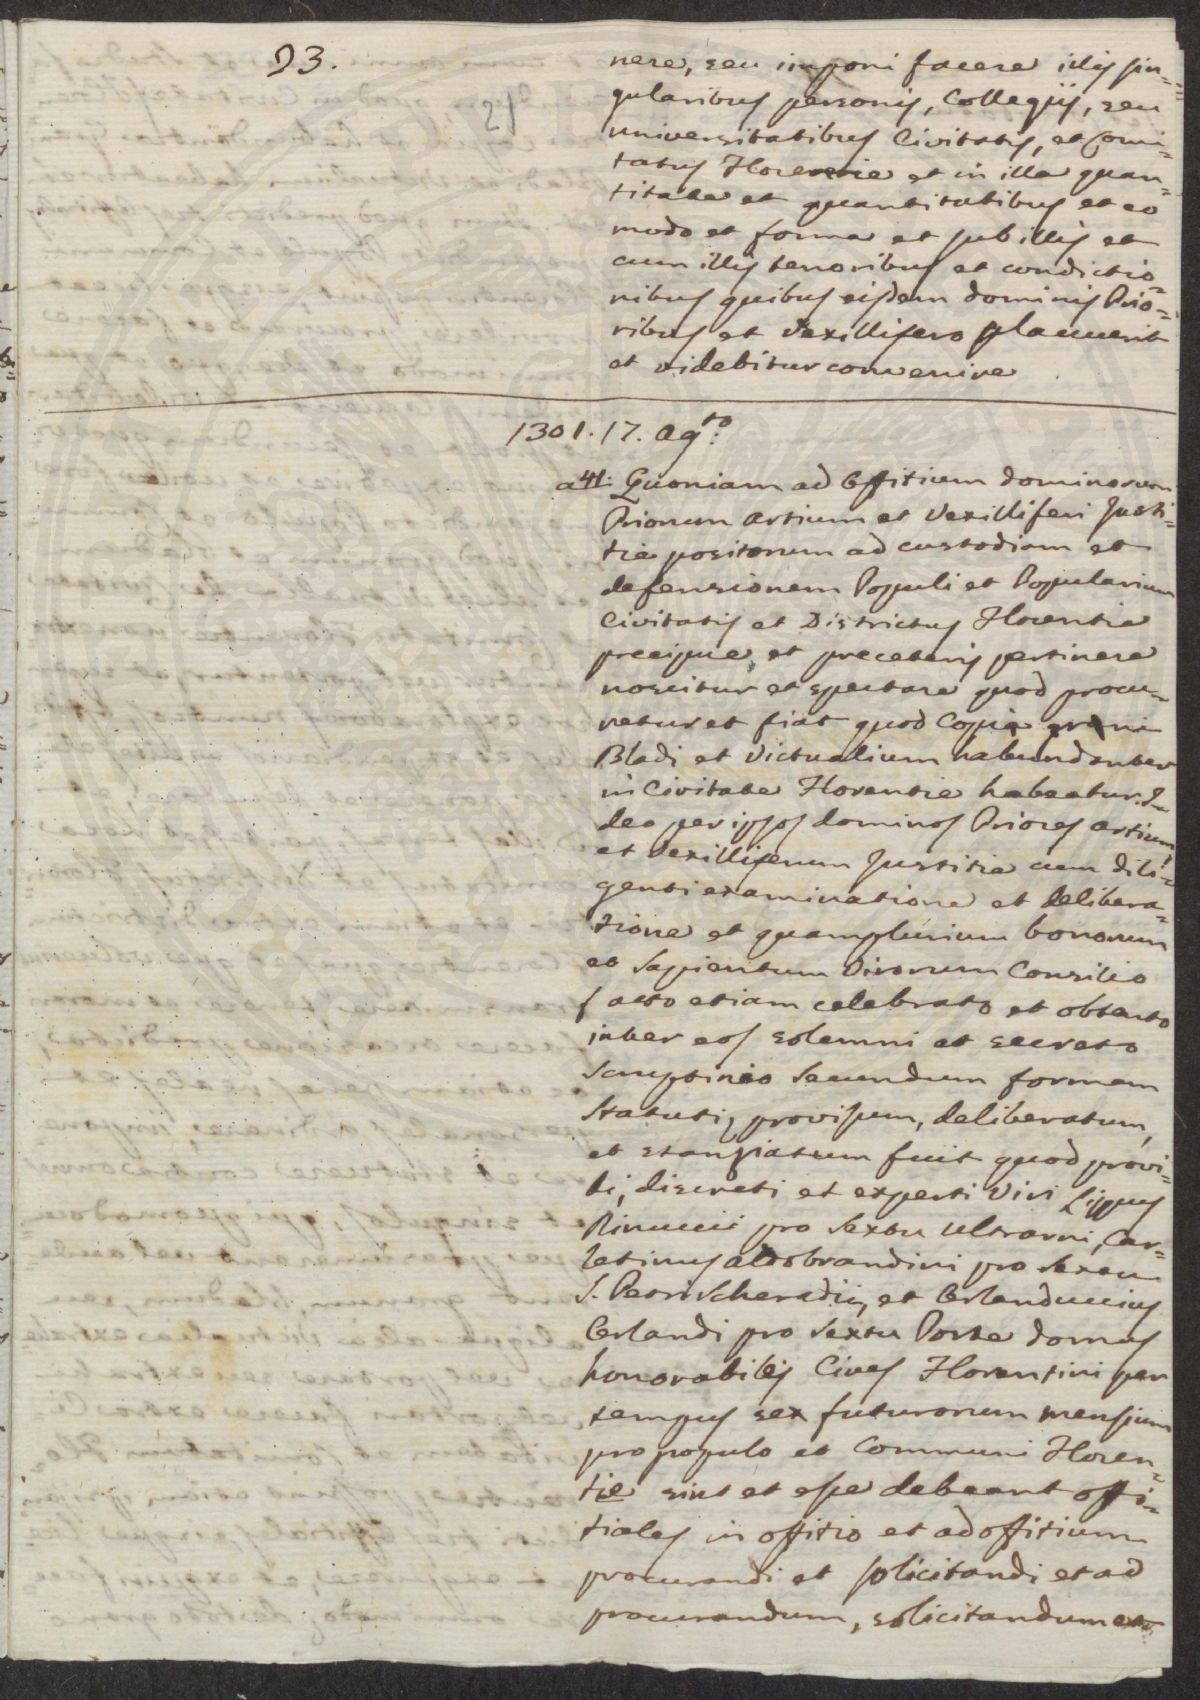 23.
21
nere, seu imponi facere illis sin-
gularibus personis, Collegiis, seu
universitatibus Civitatis, et Comi-
tatus Florentie et in illa quan-
titate et quantitatibus et eo
modo et forma et sub illis et
cum illis tenoribus et condictio-
nibus quibus eisdem dominis Prio-
ribus et Vexillifero placuerit
et videbitur convenire
1301. 17. Ag.to
a 41: Quoniam ad Offitium dominorum
Priorum Artium et Vexilliferi Justi-
tie positorum ad custodiam et
defensionem Populi et Popularium
Civitatis et Districtus Florentie
precipue, et preceteris pertinere
noscitur et spectare quod procu-
retur et fiat quod Copia grani
Bladi et Victualium habundanter
in Civitate Florentie habeatur. I-
deo per ipsos dominos Priores Artium
et Vexilliferum Justitie cum dili-
genti examinatione et delibera-
tione et quamplurium bonorum
et Sapientum Virorum Consilio
facto etiam celebrato et obtento
inter eos solemni et secreto
Scruptinio Secundum formam
Statuti, provisum, deliberatum,
et stanziatum fuit quod provi-
di, discreti et experti Viri Lippus
Rinuccii pro Sextu Ultrarni, Car-
letinus Aldobrandini pro Sextu
S. Petri Scheradii, et Orlanduccius
Orlandi pro Sextu Porte domus
honorabiles Cives Florentini per
tempus sex futurorum mensium
pro populo et Communi Floren-
tie sint et esse debeant offi-
tiales in offitio et ad offitium
procurandi et solicitandi et ad
procurandum, solicitandum et